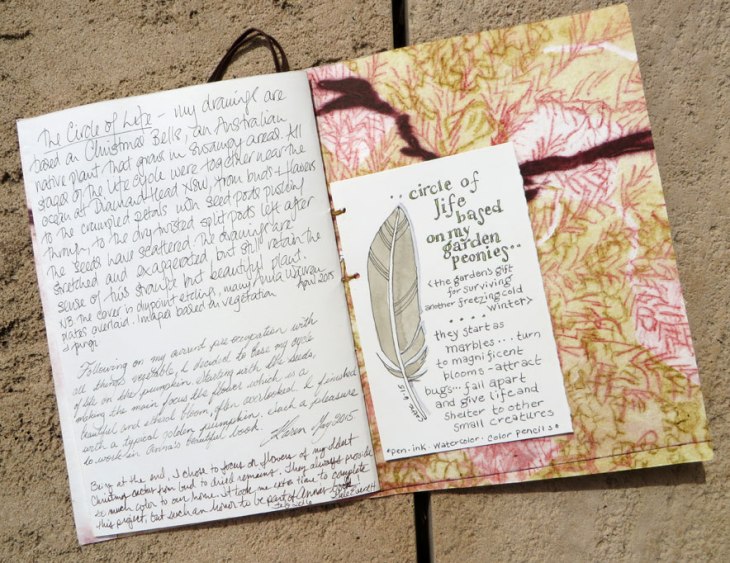 The Circle of Life - my drawings are
based on Christmas Bells, an Australian
native plant that grows in swampy areas. All
stages of the life cycle were together near the
ocean at Diamond Head NSW, from buds + flowers
to the crumpled petals with seed pods pushing
through to the dry twisted split pods left after
the seeds have scattered. The drawings are
stretched and exaggerated but still retain the
sense of this strange but beautiful plant.
NB The cover is drypoint etching, many
plates overlaid. Images based on vegetation April 2015
+ fungi.
Following on my current preoccupation with
all things vegetable, I decided to base my cycle
of life on the pumpkin. Starting with the seeds,
making the main focus the flower which is a
beautiful and ethereal bloom, often overlooked. I finished
with a typical golden pumpkin. Such a pleasure
to work in Anna's beautiful book. Karen 2015
Being at the end, I chose to focus on flowers of my oldest
Christmas cactus from bud to dried remains. They always provide
so much color to our home. It took me extra time to complete
this project, but such an honor to be part of Anna's book!
..circle of
life
based
on my
garden
peonies..
<the garden's gift
for surviving
another freezing cold
winter>
....
they start as
marbles... turn
to magnificent
blooms - attract
bugs... fall apart
and give life and
shelter to other
small creatures
*pen·ink·watercolor·color pencils*